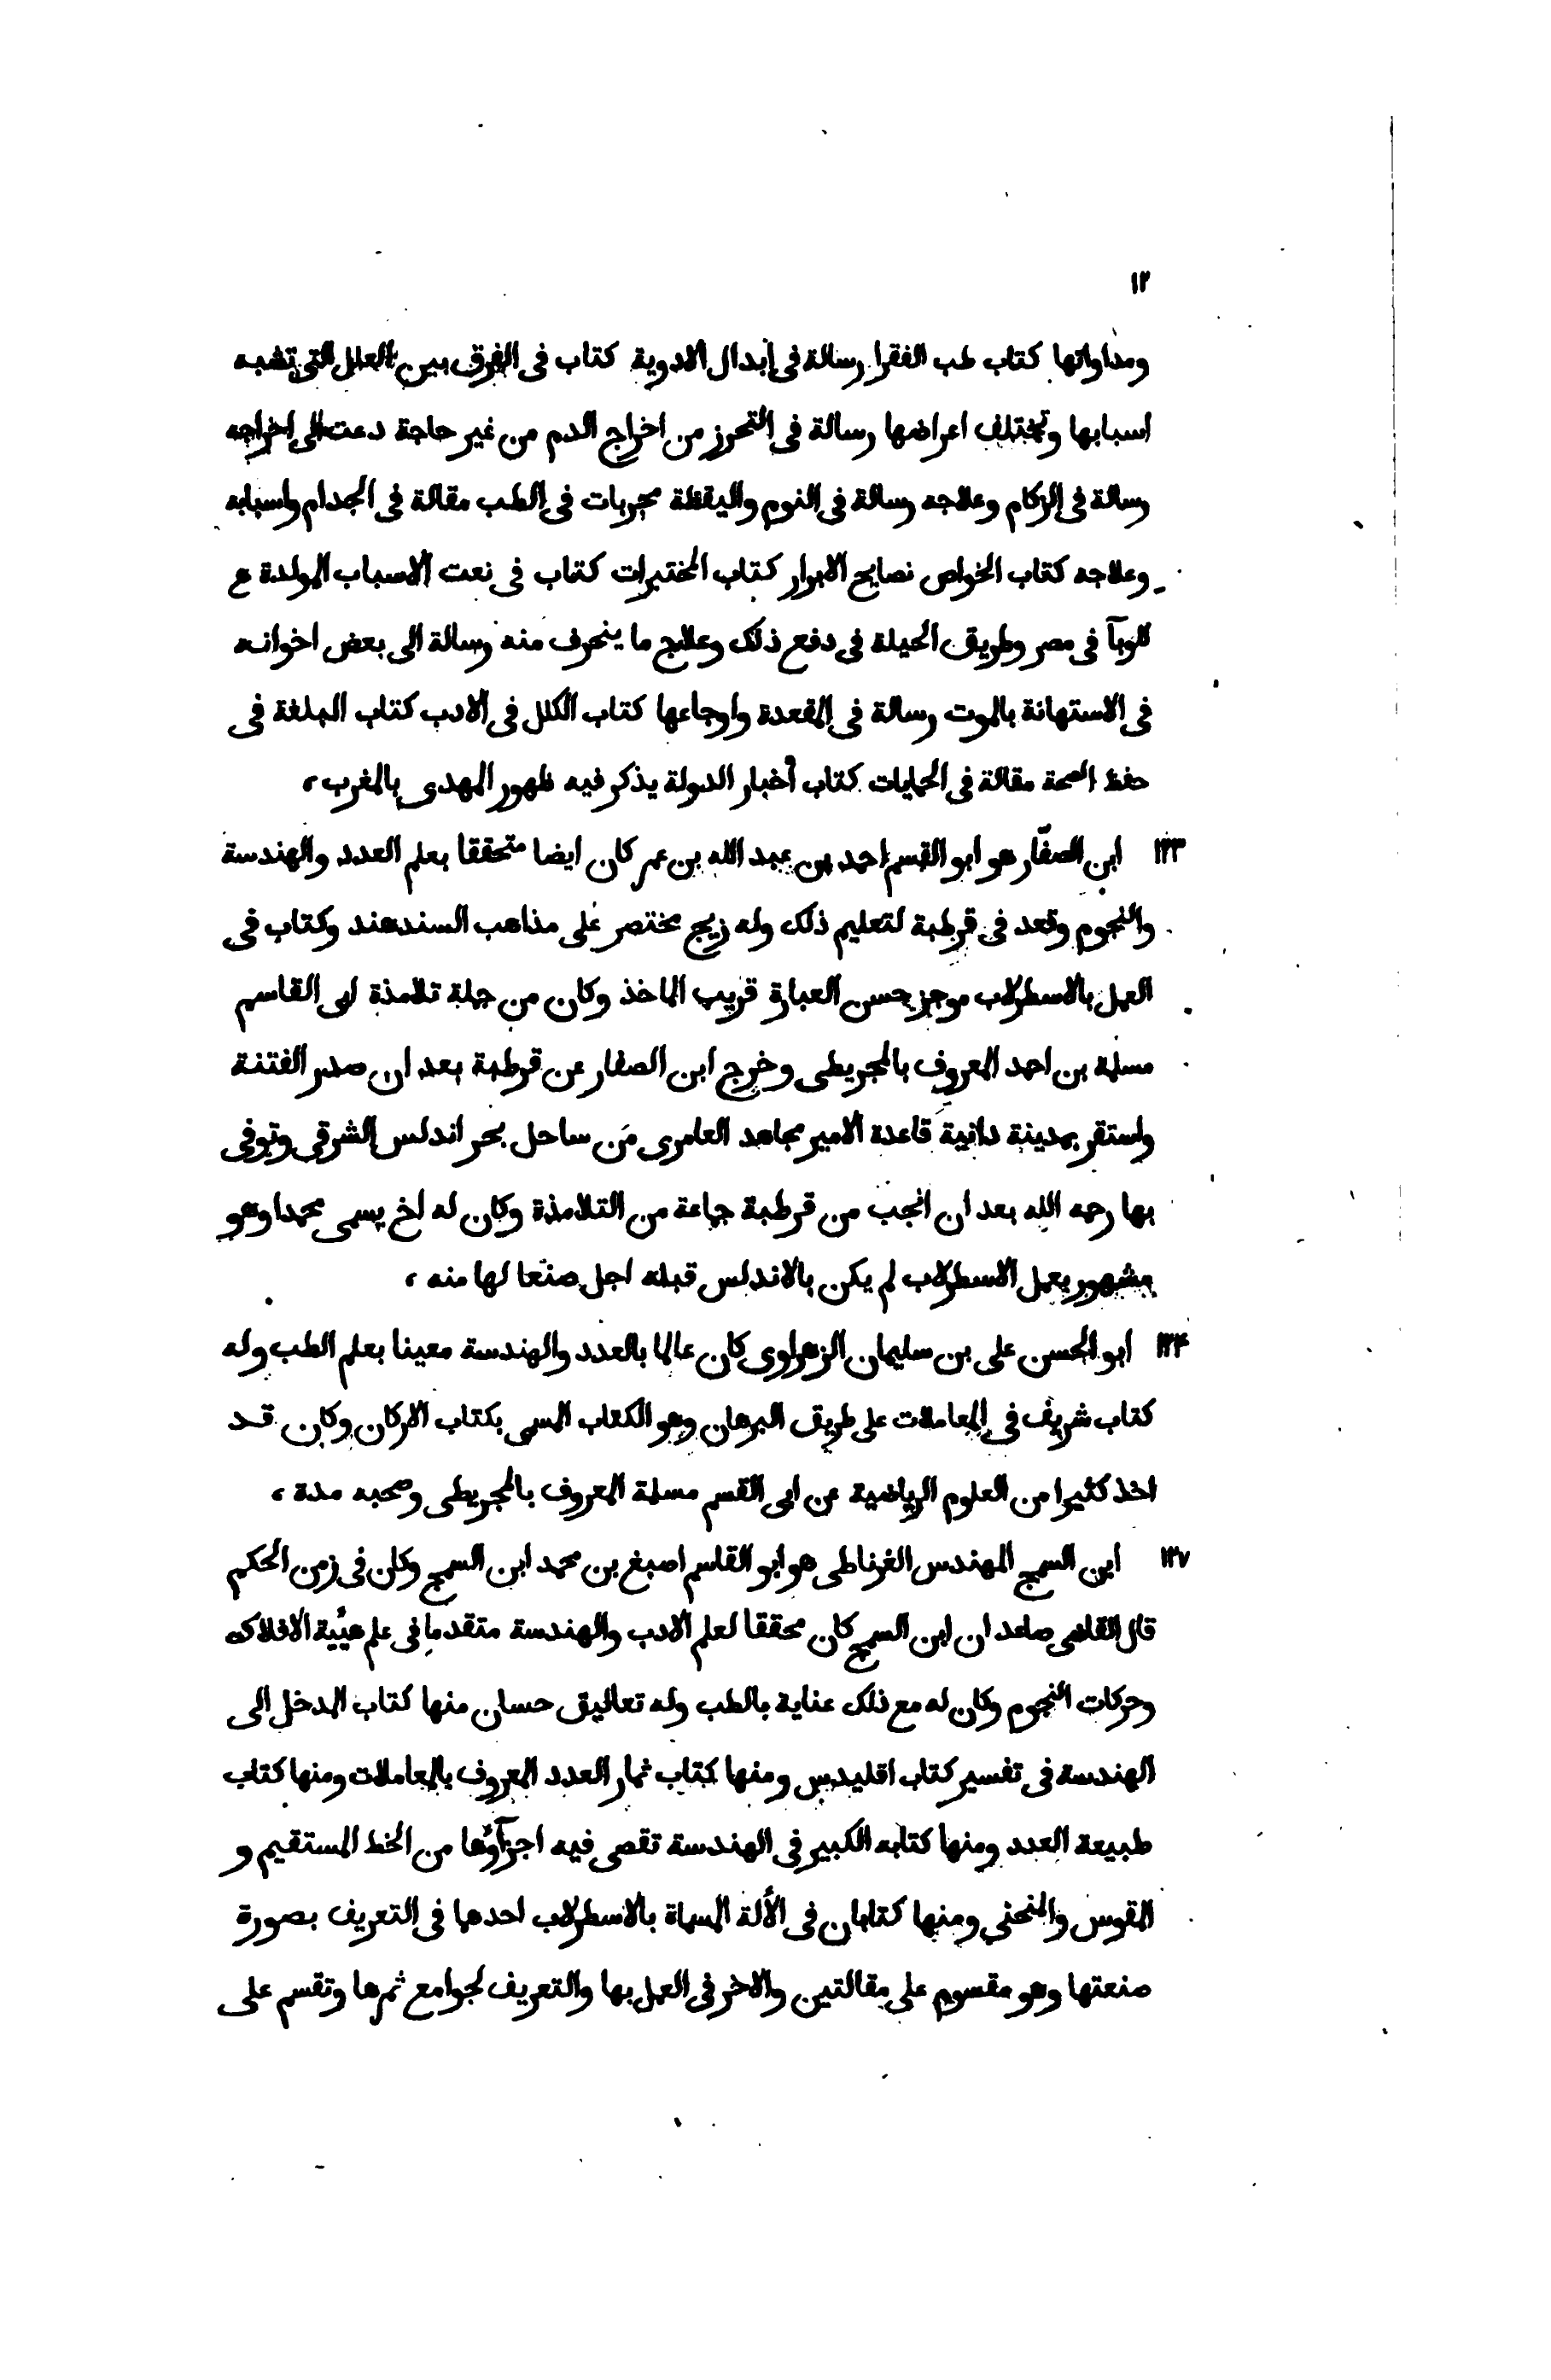 ١٢
ومداواتها كتاب طب الفقرا رسالة فى إبدال الادوية كتاب فى الفرق بين العلل التى تشبه
اسبابها وتختلف اعراضها رسالة فى التحرز من اخراج الدم من غير حاجة دعت الى إخراجه
رسالة فى الزكام وعلاجه رسالة فى النوم واليقظة مجربات فى الطب مقالة فى الجدام واسبابه
وعلاجه كتاب الخواص نصايح الابرار كتاب المختبرات كتاب فى نعت الاسباب المولدة
للوبآ فى مصر وطريق الحيلة فى دفع ذلك وعلاج ما ينحرف منه رسالة الى بعض اخوانه
فى الاستهانة بالموت رسالة فى المقعدة واوجاعها كتاب الكلل فى الادب كتاب البلغة فى
حفظ الصحة مقالة فى الحمايات كتاب أخبار الدولة يذكر فيه ظهور المهدى بالمغرب،
١٢٣ ابن الصفّار هو ابو القسم احمد بن عبد الله بن عمر كان ايضا متحققا بعلم العدد والهندسة
والنجوم وقعد فى قرطبة لتعليم ذلك وله زيج مختصر على مذاهب السندهند وكتاب فى
العمل بالاسطرلاب موجز حسن العبارة قريب الماخذ وكان من جملة تلامذة ابى القاسم
مسلمة بن احمد المعروف بالمجريطى وخرج ابن الصفار عن قرطبة بعد ان صدر الفتنة
واستقر بمدينة دانية قاعدة الامير مجاهد العامرى من ساحل بحر اندلس الشرقى وتوفى
بها رحمه الله بعد ان انجب من قرطبة جماعة من التلامذة وكان له اخ يسمى محمدا وهو
مشهور بعمل الاسطرلاب لم يكن بالاندلس قبله اجل صنعا لها منه،
١٢۴ ابو الحسن على بن سليمان الزهراوى كان عالما بالعدد والهندسة معينا بعلم الطب وله
كتاب شريف فى المعاملات على طريق البرهان وهو الكتاب المسمى بكتاب الاركان وكان قد
اخذ كثيرا من العلوم الرياضية عن ابى القسم مسلمة المعروف بالمجريطى وصحبه مدة،
١٢٧ ابن السمج المهندس الغرناطى هو ابو القاسم اصبغ بن محمد ابن السمج وكان فى زمن الحكم
قال القاضى صاعد ان ابن السمج كان محققا لعلم الادب والهندسة متقدما فى علم هئية الافلاك
وحركات النجوم وكان له مع ذلك عناية بالطب وله تعاليق حسان منها كتاب المدخل الى
الهندسة فى تفسير كتاب اقليدس ومنها كتاب ثمار العدد المعروف بالمعاملات ومنها كتاب
طبيعة العدد ومنها كتابه الكبير فى الهندسة تقصى فيه اجزآوٴها من الخط المستقيم و
المقوس والمنحنى ومنها كتابان فى الألة المسماة بالاسطرلاب احدهما فى التعريف بصورة
صنعتها وهو مقسوم على مقالتين والاخر فى العمل بها والتعريف لجوامع ثمرها وتقسم على